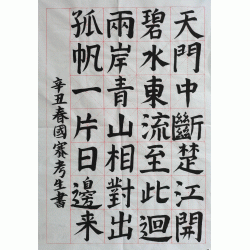 天門中斷楚江開
碧水東流至此迴
兩岸青山相對出
孤帆一片日邊来
辛丑春國賽考生書